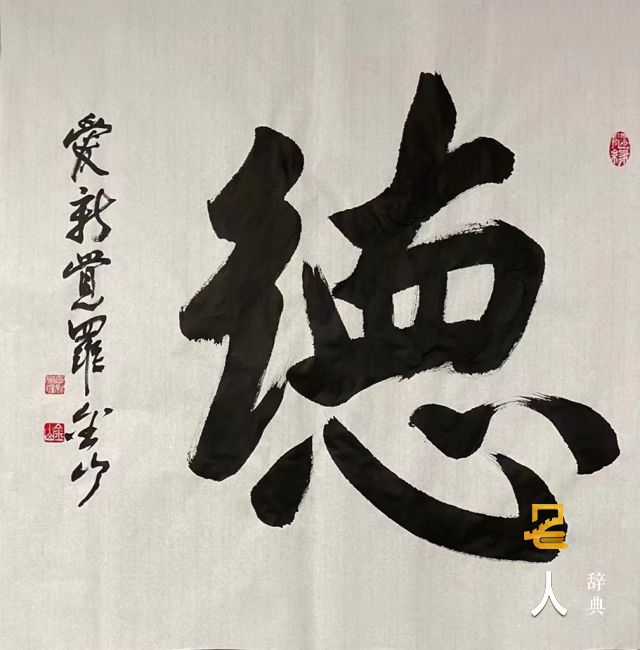 德
愛新覺羅金山
人
辞典